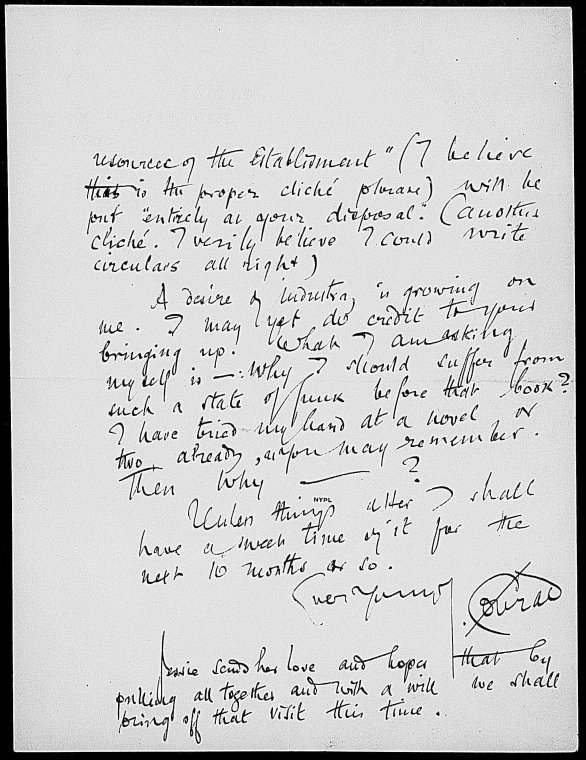 resources of the Establisment" (I believe
this is the proper cliché phrase) will be
put "entirely at your disposal". (another
cliché. I verily believe I could write
circulars all right)
A desire of industry is growing on
me. I may yet do credit to your
bringing up. What I am asking
myself is —: Why I should suffer from
such a state of funk before that book?
I have tried my hand at a novel or
two, already, as you may remember.
Then Why —— ?
NYPL
Unless things alter I shall
have a sweet time of it for the
next 10 months or so.
Ever Yours
Conrad
Jessie sends her love and hopes that by
pulling all together and with a will we shall
bring off that visit this time.